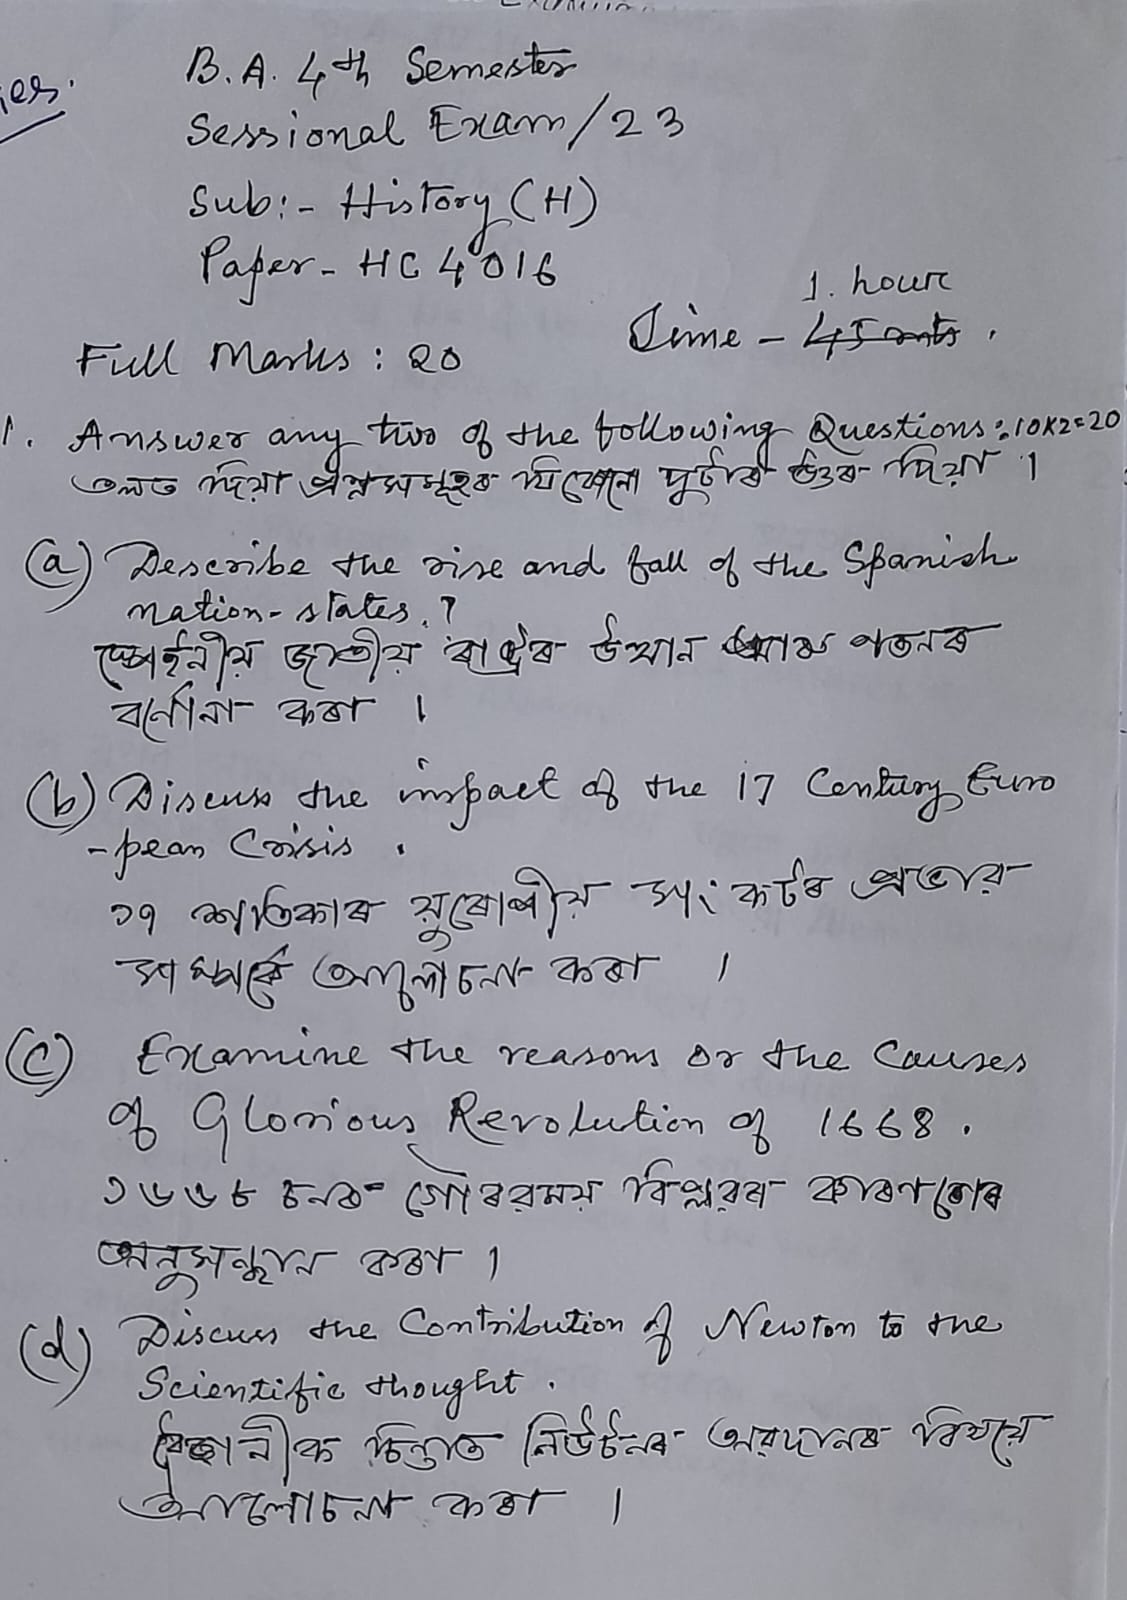 B.A. 4th Semester
Sessional Exam/23
Sub:- History (H)
Paper - HC 4016
1. hour
Time - 45 mts.
Full Marks : 20
1. Answer any two of the following Questions: 10x2=20
তলত দিয়া প্ৰশ্নসমূহৰ যিকোনো দুটাৰ উত্তৰ দিয়া ।
(a) Describe the rise and fall of the Spanish
nation-states.?
স্পেইনীয় জাতীয় ৰাষ্ট্ৰৰ উত্থান আৰু পতনৰ
বৰ্ণোনা কৰা ।
(b) Discuss the impact of the 17 Century Euro
-pean Crisis.
১৭ শতিকাৰ য়ুৰোপীয় সংকটৰ প্ৰভাৱ
সম্পৰ্কে আলোচনা কৰা ।
(c) Examine the reasons or the Causes
of Glorious Revolution of 1668.
১৬৬৮ চনৰ গৌৰৱময় বিপ্লৱৰ কাৰণবোৰ
অনুসন্ধান কৰা ।
(d) Discuss the Contribution of Newton to the
Scientific thought.
বৈজ্ঞানীক চিন্তাত নিউটনৰ অৱদানৰ বিষয়ে
আলোচনা কৰা ।